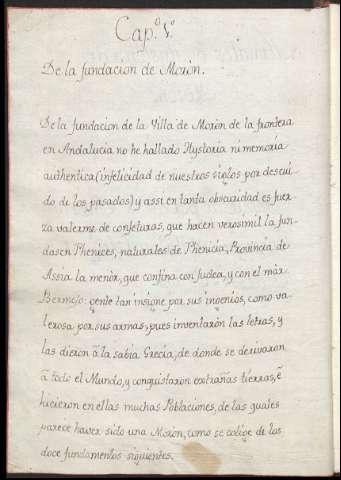 Cap.º V.º
De la fundacion de Moròn.
De la fundacion de la Villa de Moròn de la frontera
en Andalucia no he hallado Hystoria ni memoria
authentica (infelicidad de nuestros siglos por descui-
do de los pasados) y assi en tanta obscuridad es fuer-
za valerme de conjeturas, que hacen verosimil la fun-
dasen Phenices, naturales de Phenicia, Provincia de
Assia la menòr, que confina con Judea, y con el màr
Bermejo: gente tan insigne por sus ingenios, como va-
lerosa por sus armas, pues inventaròn las letras, y
las dieròn à la sabia Grecia, de donde se derivaron
à todo el Mundo, y conquistaron extrañas tierras, è
hicieron en ellas muchas Poblaciones, de las quales
parece haver sido una Moròn, como se colige de los
doce fundamentos siguientes.